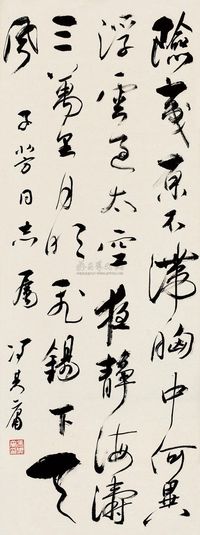 險夷原不滯胸中何異
浮雲過太空夜靜海濤
三萬里月明飛錫下天
風
子芳同志屬
馮其庸